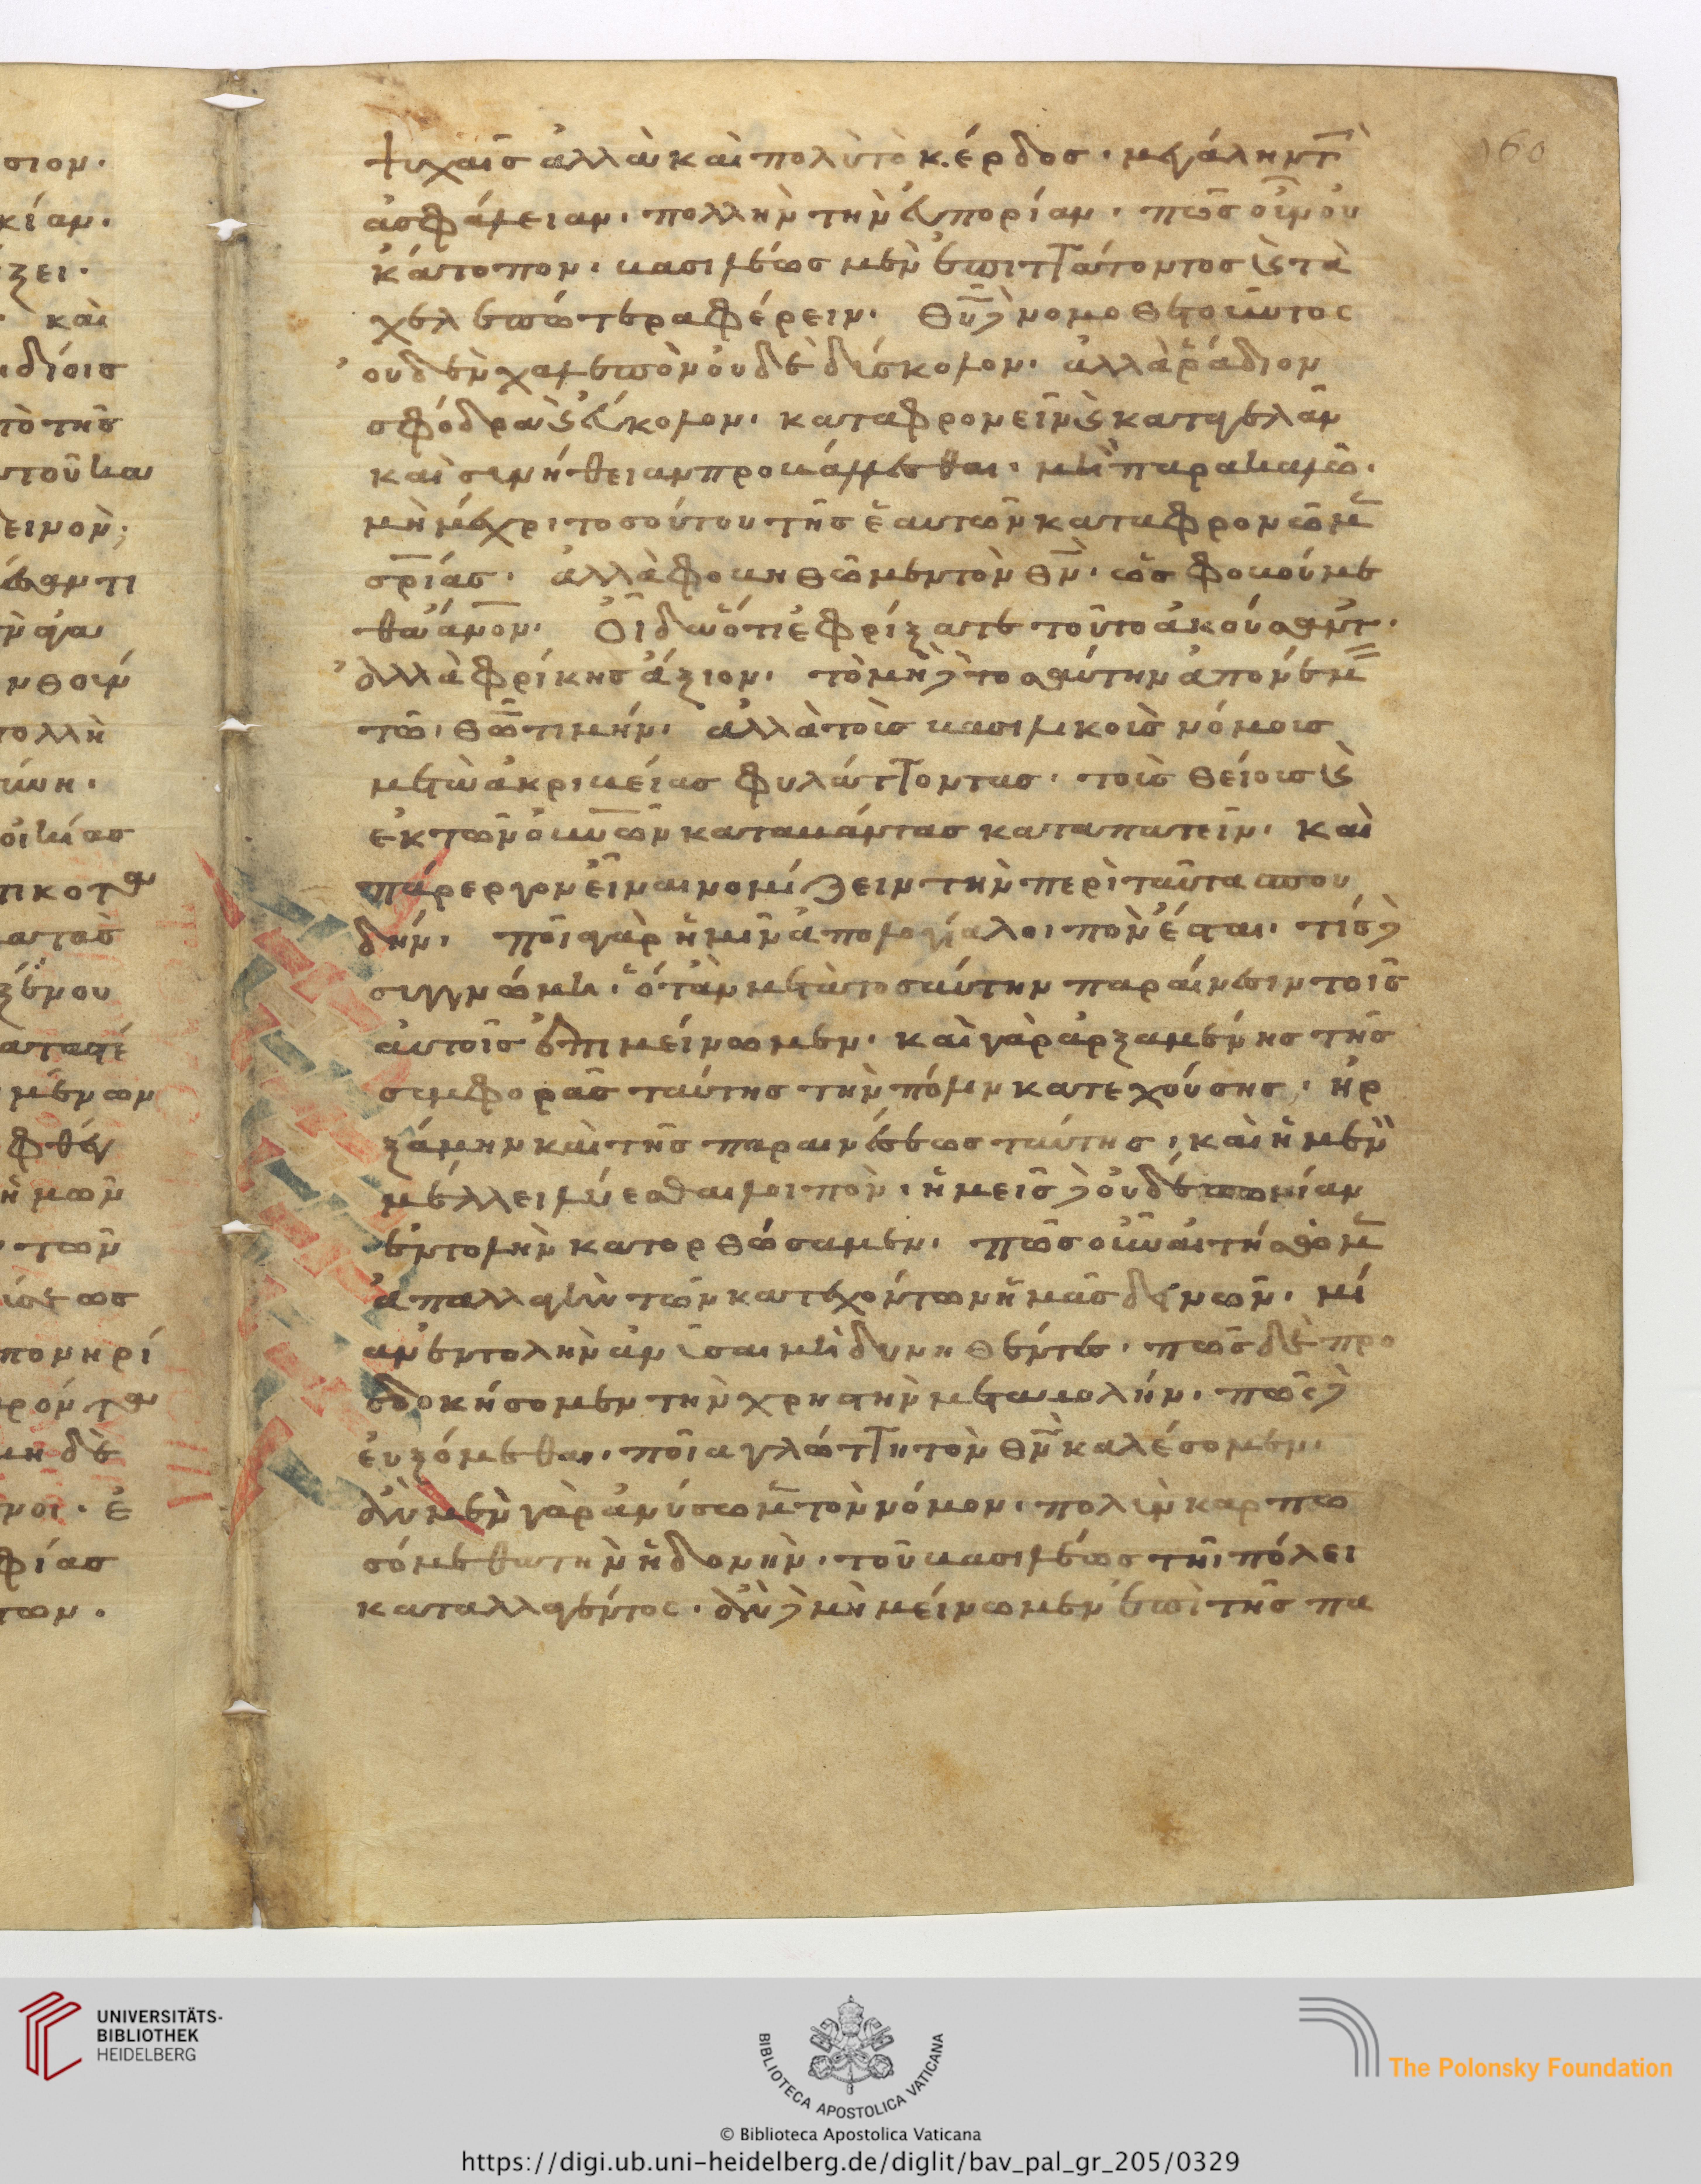 σιον·
κίαν·
ζει·
καὶ
ιδίοις
τὸ τῆς
ειμον;
πολλὴ
ψυχαῖς ἀλλὰ καὶ πολὺ τὸ κέρδος· μεγάλην τ(ὴν)
ἀσφάλειαν· πολλὴν τὴν εὐπορίαν· πῶς οὖν οὐ
κ ἄτοπον· βασιλέως μὲν ἐπιτάττοντος καὶ τὰ
χαλεπώτερα φέρειν· θῦ δὲ νομοθετοῦντος
οὐδὲν χαλεπὸν οὐδὲ δύσκολον· ἀλλὰ ῥάδιον
σφόδρα καὶ εὔκολον· καταφρονεῖν καὶ καταγελᾶν
καὶ συνήθειαν προβάλλεσθαι· μὴ παρακαλῶ·
μὴ μέχρι τοσούτου τῆς ἑαυτῶν καταφρονῶμ(εν)
σρίας· ἀλλὰ φοβηθῶμεν τὸν θν· ὡς φοβούμε
θα ἄνον· Οἶδα ὅτι ἐφρίξατε τοῦτο ἀκούσαντ(ες)·
ἀλλὰ φρίκης ἄξιον· τὸ μηδὲ τοσαύτην ἀπονέμ(ειν)
τῷ θῶ τιμήν· ἀλλὰ τοῖς βασιλικοῖς νόμοις
μετὰ ἀκριβείας φυλάττοντας· τοῖς θείοις καὶ
ἐκ τῶν οὐνῶν καταβάντας καταπατεῖν· καὶ
πάρεργον εἶναι νομίζειν τὴν περὶ ταῦτα σπου
δήν· ποῖ γὰρ ἡμῖν ἀπολογία λοιπὸν ἔσται· τίς δὲ
συγγνώμη· ὅταν μετὰ τοσαύτην παραίνεσιν τοῖς
αὐτοῖς ἐπιμείνωμεν· καὶ γὰρ ἀρξαμένης τῆς
συμφορᾶς ταύτης τὴν πόλιν κατεχούσης· ἠρ
ξάμην καὶ τῆς παραινέσεως ταύτης· καὶ ἡ μὲν
μέλλει λύεσθαι λοιπὸν· ἡμεῖς δὲ οὐδέπω μίαν
ἐντολὴν κατορθώσαμεν· πῶς οὖν αἰτησόμ(εθα)
ἀπαλλαγὴν τῶν κατεχόντων ἡμᾶς δεινῶν· μί
αν ἐντολὴν ἀνῦσαι μὴ δυνηθέντες· πῶς δὲ προ
σδοκήσομεν τὴν χρηστὴν μεταβολήν· πῶς δὲ
εὐξόμεθα· ποία γλώττη τὸν θν καλέσομεν·
ἂν μὲν γὰρ ἀνύσωμ(εν) τὸν νόμον· πολὺν καρπω
σόμεθα τὴν ἡδονὴν· τοῦ βασιλέως τῆι πόλει
καταλλαγέντος· ἂν δὲ μὴ μείνωμεν ἐπὶ τῆς πα
160
UNIVERSITÄTS-
BIBLIOTHEK
HEIDELBERG
BIBLIOTECA APOSTOLICA VATICANA
The Polonsky Foundation
© Biblioteca Apostolica Vaticana
https://digi.ub.uni-heidelberg.de/diglit/bav_pal_gr_205/0329